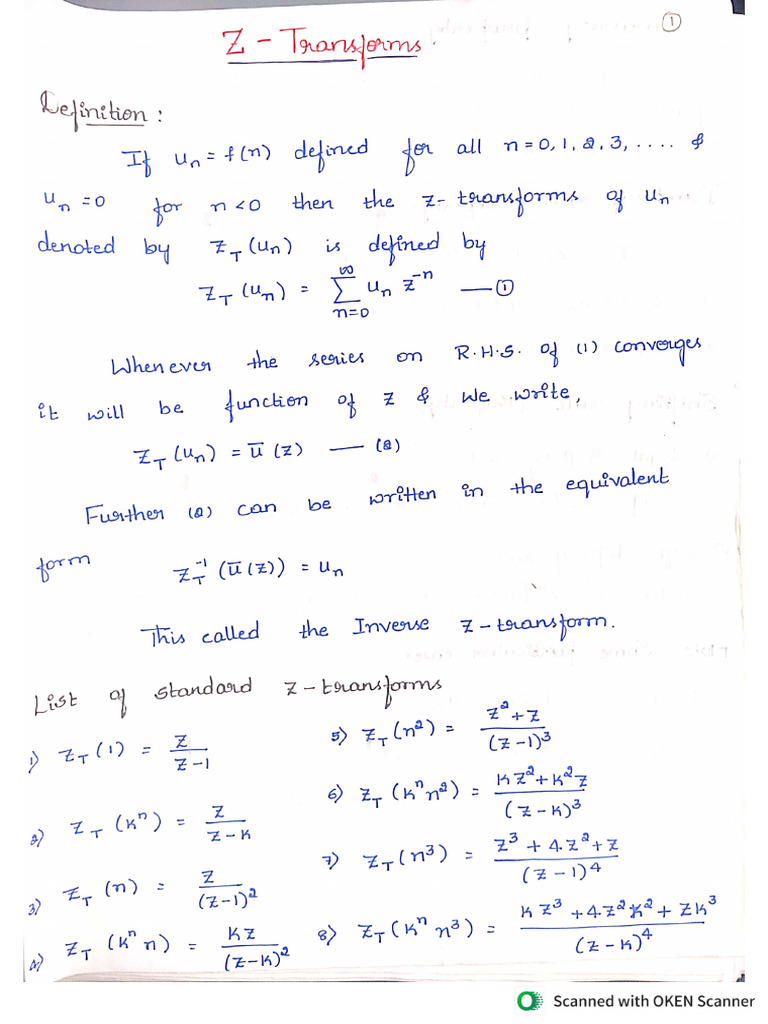 1
Z - Transforms.
Definition :
If uₙ = f(n) defined for all n = 0, 1, 2, 3, .... &
uₙ = 0 for n < 0 then the z-transforms of uₙ
denoted by Z_T (uₙ) is defined by
Z_T (uₙ) = ∑_{n=0}^{∞} uₙ z⁻ⁿ — ①
Whenever the series on R.H.S. of (1) converges
it will be function of z & we write,
Z_T (uₙ) = ū (z) — (2)
Further (2) can be written in the equivalent
form Z_T⁻¹ (ū (z)) = uₙ
This called the Inverse z-transform.
List of standard z-transforms
1) Z_T (1) = z / (z-1)
2) Z_T (kⁿ) = z / (z-k)
3) Z_T (n) = z / (z-1)²
4) Z_T (kⁿ n) = kz / (z-k)²
5) Z_T (n²) = (z² + z) / (z-1)³
6) Z_T (kⁿ n²) = (kz² + k²z) / (z-k)³
7) Z_T (n³) = (z³ + 4z² + z) / (z-1)⁴
8) Z_T (kⁿ n³) = (kz³ + 4z²k² + zk³) / (z-k)⁴
Scanned with OKEN Scanner